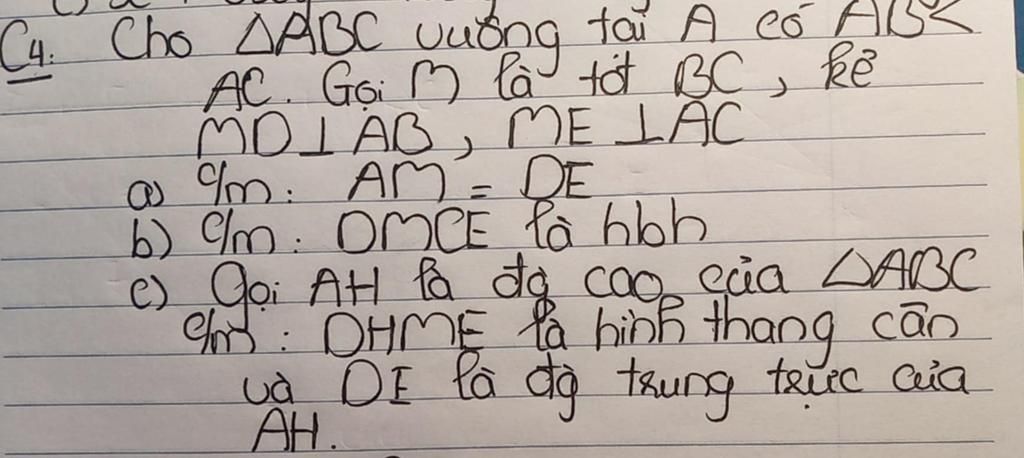 C4. Cho ΔABC vuông tại A có AB<
AC. Gọi M là tđ BC, kẻ
MD⊥AB, ME⊥AC
a) c/m: AM = DE
b) c/m: DMCE là hbh
c) Gọi AH là đg cao của ΔABC
c/m: DHME là hình thang cân
và DE là đg trung trực của
AH.